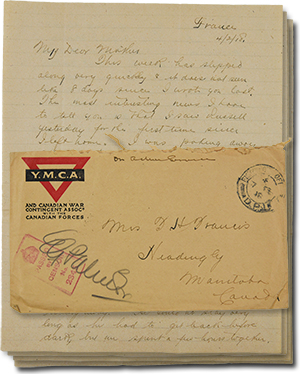 France
4/2/18.
My Dear Mother.
This week has slipped
along very quickly & it does not seem
like 8 days since I wrote you last.
The most interesting news I have
to tell you is that I saw Russell
yesterday for the first time since
I left home. I was working away
On Active Service
Y.M.C.A.
AND CANADIAN WAR
CONTINGENT ASSOCN
WITH THE
CANADIAN FORCES
Mrs F H Francis
Headingly
Manitoba
Canada
long as he had to get back before
dark, but we spent a few hours together.